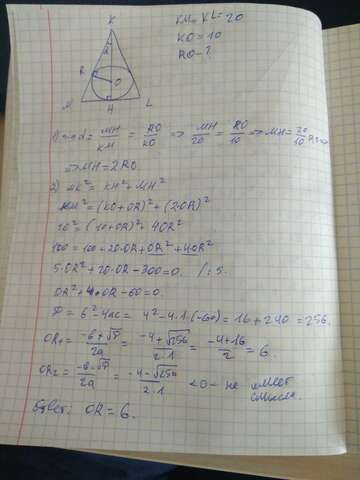 K
KM = KL = 20
KO = 10
RO - ?
α
R
O
M
H
L
1) sin α = MH/KM = RO/KO => MH/20 = RO/10 => MH = 20/10 RO =>
=> MH = 2RO.
2) MK² = KH² + MH²
MK² = (KO+OR)² + (2·OR)²
20² = (10+OR)² + 4OR²
400 = 100 + 20·OR + OR² + 4OR²
5·OR² + 20·OR - 300 = 0. /: 5.
OR² + 4·OR - 60 = 0.
D = b² - 4ac = 4² - 4·1·(-60) = 16 + 240 = 256.
OR₁ = (-b+√D)/2a = (-4+√256)/2·1 = (-4+16)/2 = 6.
OR₂ = (-b-√D)/2a = (-4-√256)/2·1 < 0 - не имеет
смысла.
Ответ: OR = 6.